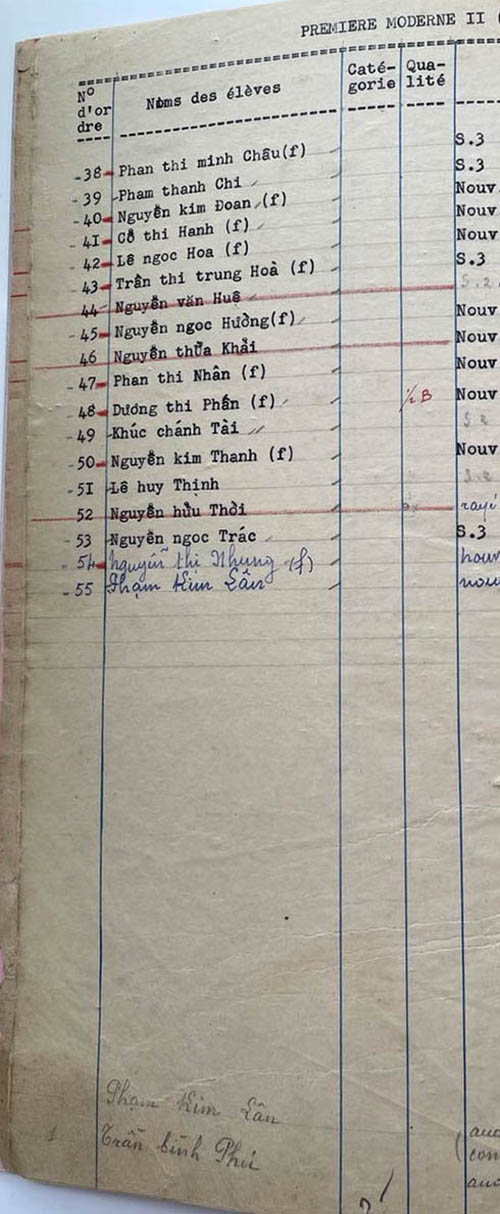 PREMIERE MODERNE II (
N° d'or dre
Noms des élèves
Caté- gorie
Qua- lité
-38- Phan thi minh Châu(f) S.3
-39 -Pham thanh Chi S.3
-40- Nguyễn kim Đoan (f) Nouv
-41- Cỗ thi Hanh (f) Nouv
-42- Lê ngoc Hoa (f) Nouv
-43- Trần thi trung Hoà (f) S.3
44- Nguyễn văn Huê S.2
-45- Nguyễn ngoc Hường(f) Nouv
46 Nguyễn thừa Khải Nouv
-47- Phan thi Nhân (f) Nouv
-48- Dương thi Phấn (f) 1/2 B Nouv
-49 -Khúc chánh Tài S.2
-50- Nguyễn kim Thanh (f) Nouv
-51 -Lê huy Thịnh S.2
52 Nguyễn hữu Thời rayé
-53 -Nguyễn ngoc Trác S.3
-54- Nguyễn thi Nhung (f) nouv
-55 Phạm Kim Lân nouv
Phạm Kim Lân
1 Trần bình Phú